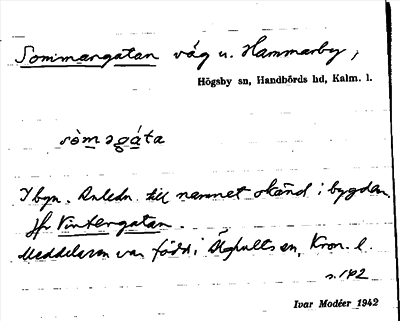 Sommargatan väg u. Hammarby,
Högsby sn, Handbörds hd, Kalm. l.
sòmagáta
I byn. Anledn. till namnet okänd i bygden,
jfr Vintergatan.
Meddelaren var född i Älghults sn, Kron. l.
s. 192
Ivar Modéer 1942